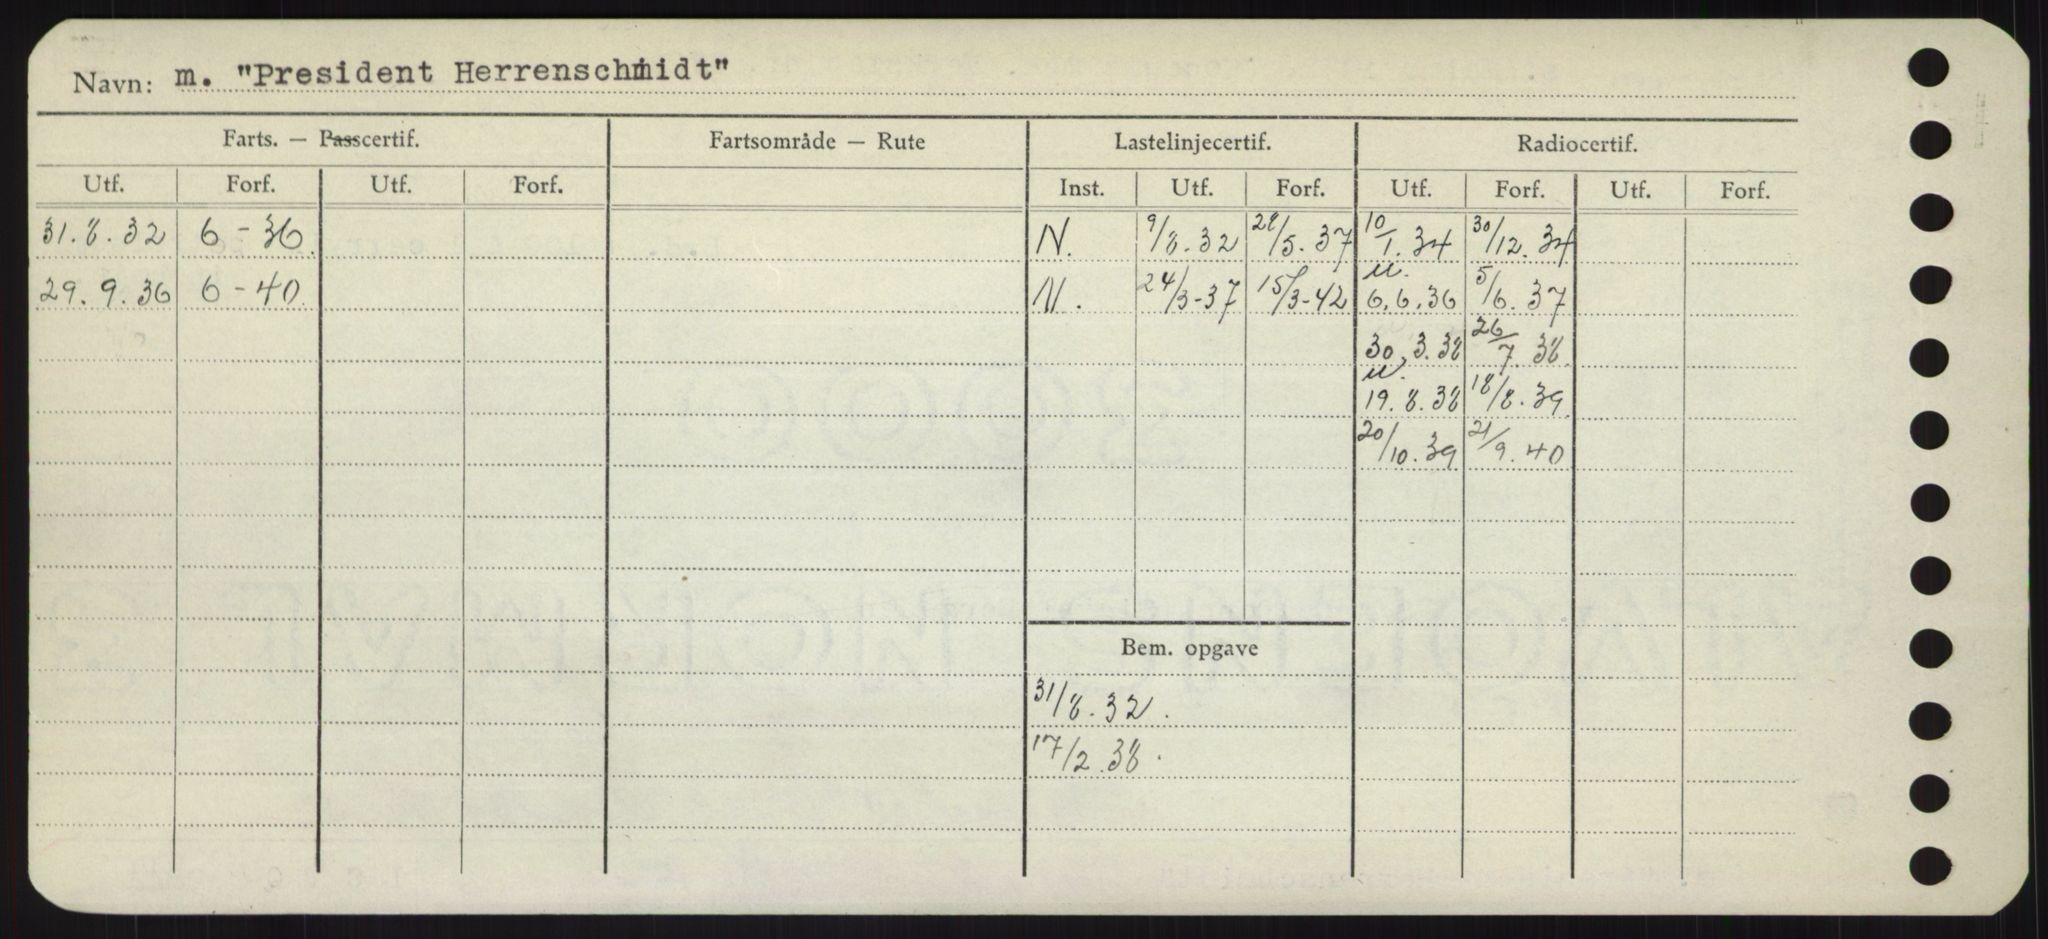 Navn: m. "President Herrenschmidt"
Farts. — Passcertif. Fartsområde — Rute Lastelinjecertif. Radiocertif.
Utf. Forf. Utf. Forf. Inst. Utf. Forf. Utf. Forf. Utf. Forf.
31.8.32 6-36 N. 9/8.32 28/5.37 10/1.34 30/12.34
29.9.36 6-40 N. 24/3-37 15/3-42 u. 6.6.36 5/6.37
30.3.38 26/7 38
u. 19.8.38 18/8.39
20/10.39 21/9.40
Bem. opgave
31/8.32.
17/2.38.